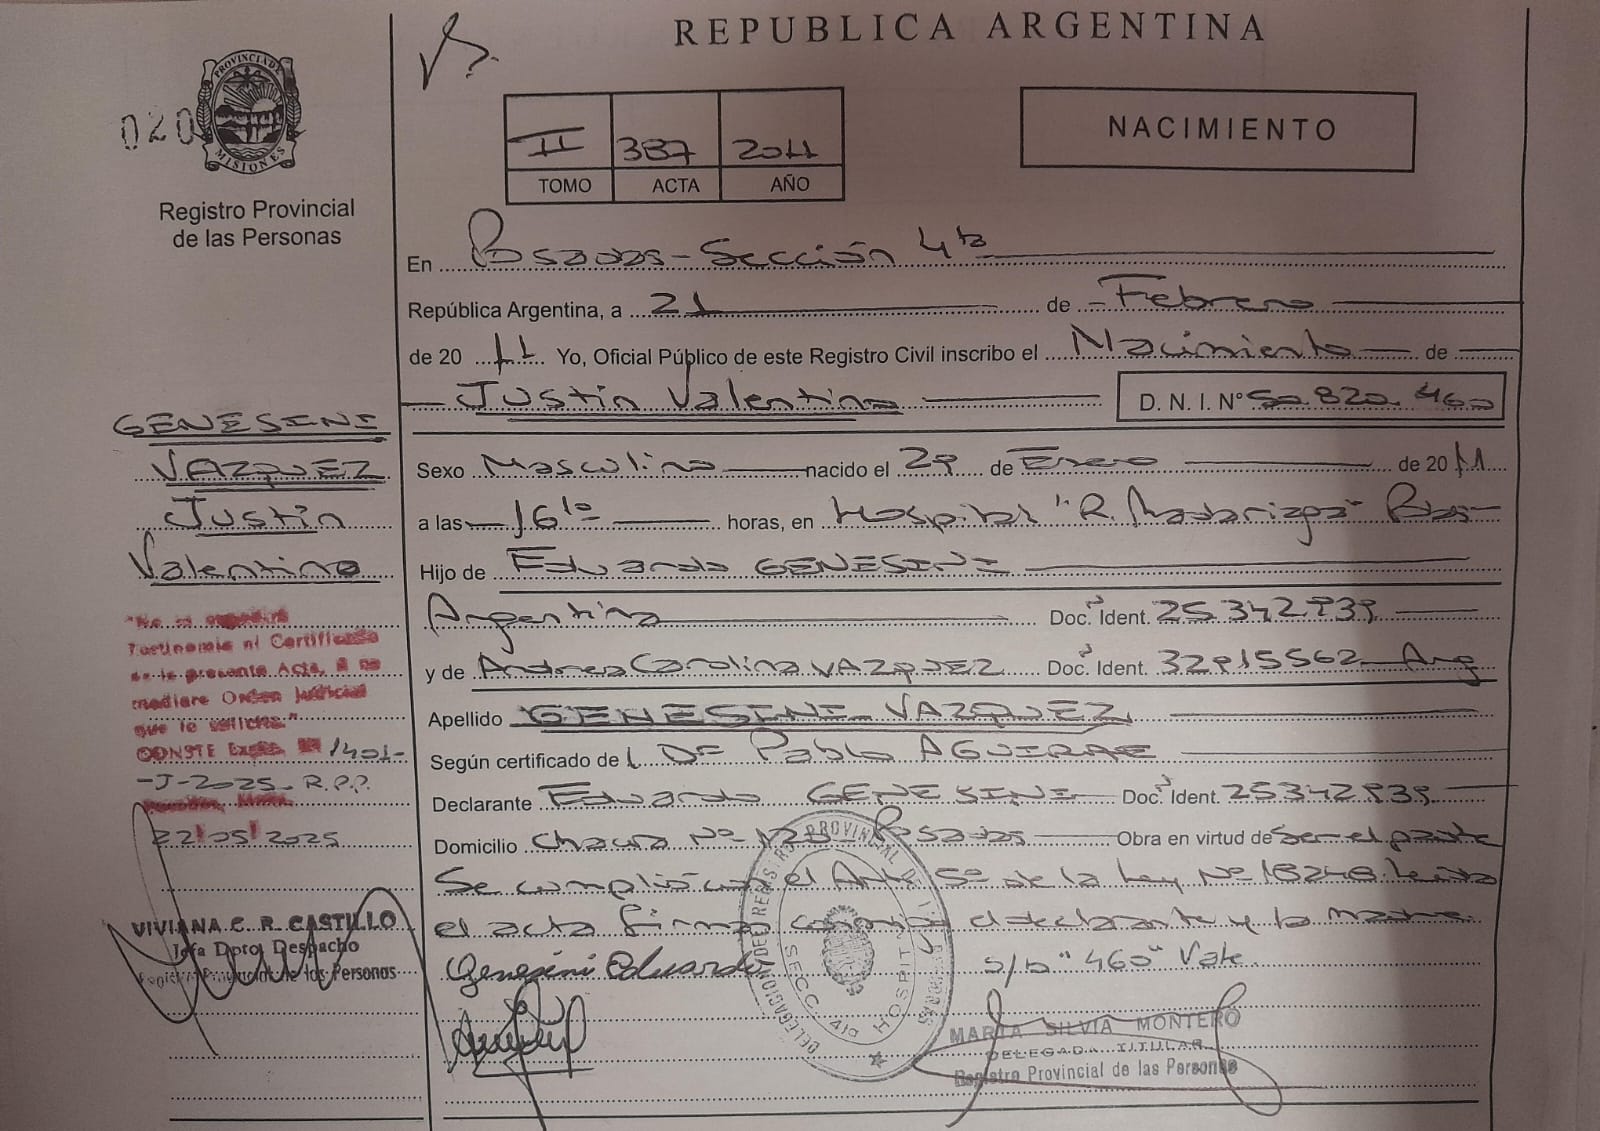 REPUBLICA ARGENTINA
020
PROVINCIA DE MISIONES
Registro Provincial
de las Personas
II 387 2011
TOMO ACTA AÑO
NACIMIENTO
En Posadas - Sección 4ta
República Argentina, a 21 de Febrero
de 20 11 Yo, Oficial Público de este Registro Civil inscribo el Nacimiento de
Justin Valentino D. N. I. N° 50.820.460
GENESINI
VAZQUEZ
Justin
Valentino
Sexo Masculino nacido el 29 de Enero de 20 11
a las 16 10 horas, en Hospital "R. Madariaga" Pdas
Hijo de Eduardo GENESINI
Argentina Doc. Ident. 25342939
y de Andrea Carolina VAZQUEZ Doc. Ident. 32915562 Arg
Apellido GENESINI VAZQUEZ
Según certificado de Dr Pablo AGUIRRE
Declarante Eduardo GENESINI Doc. Ident. 25342939
Domicilio Chacra N° Posadas Obra en virtud de Ser el padre
Se cumplió con el Art 5° de la Ley N° 18248 leída
el acta firma conmigo el declarante y la madre.
Genesini Eduardo s/b "460" Vale
"No se
Testimonio ni Certificado
de la presente Acta, si no
mediare Orden Judicial
que lo solicite."
CONSTE Expte. 1401-
-J-2025- R.P.P.
22/05/2025
VIVIANA C. R. CASTILLO
Jefa Dpto. Despacho
Registro Provincial de las Personas
DELEGACION DEL REGISTRO PROVINCIAL DE LAS PERSONAS
SECC. 4ta HOSPITAL
MARTA SILVIA MONTERO
DELEGADA TITULAR
Registro Provincial de las Personas